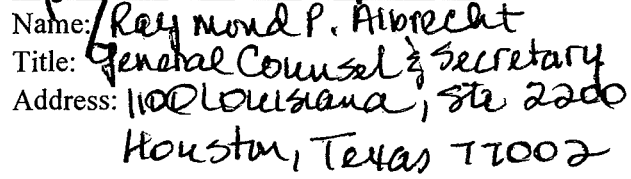 Name: Raymond P. Albrecht
Title: General Counsel & Secretary
Address: 1100 Louisiana, Ste 2200
Houston, Texas 77002